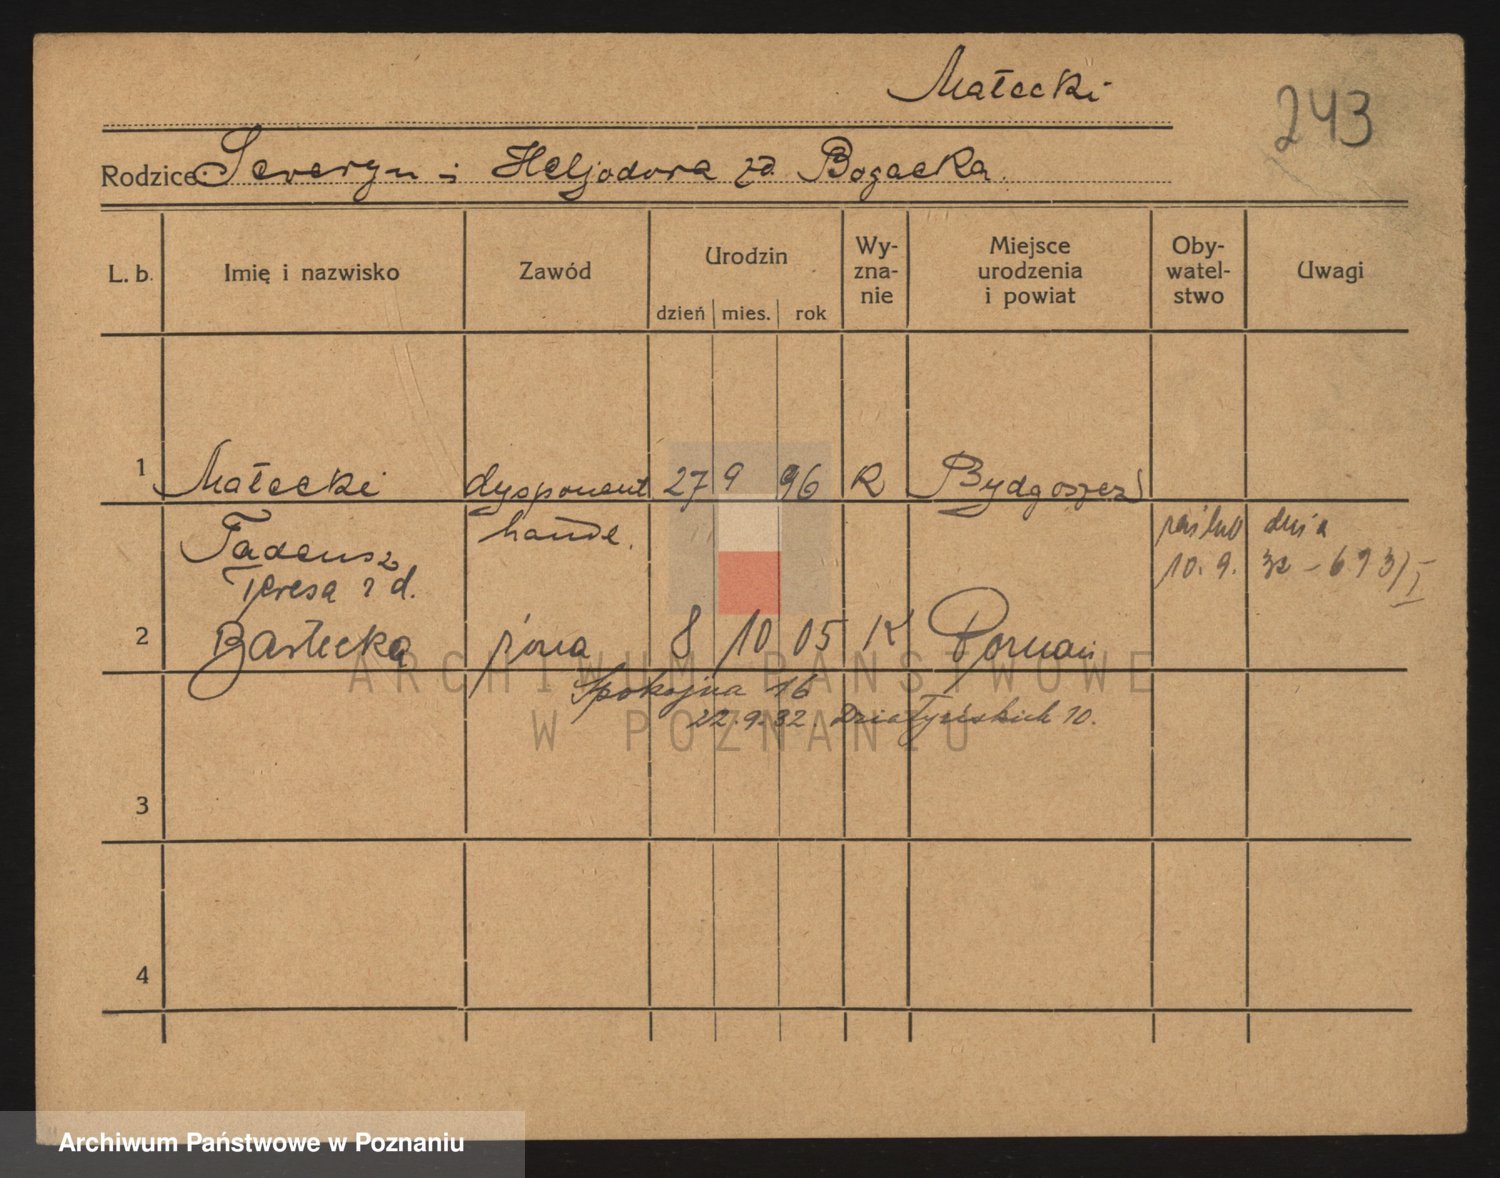 Małecki
243
Rodzice: Seweryn i Heljodora zd. Bogacka.
L. b. Imię i nazwisko Zawód Urodzin dzień mies. rok Wy-zna-nie Miejsce urodzenia i powiat Oby-watel-stwo Uwagi
1 Małecki dysponent 27 9 96 R Bydgoszcz
Tadeusz handl. ślub dnia
Teresa zd. 10. 9. 32 - 693/I
2 Bartecka żona 8 10 05 K Poznań
Spokojna 16
22.9.32. Działyńskich 10.
3
4
ARCHIWUM PAŃSTWOWE
W POZNANIU
Archiwum Państwowe w Poznaniu